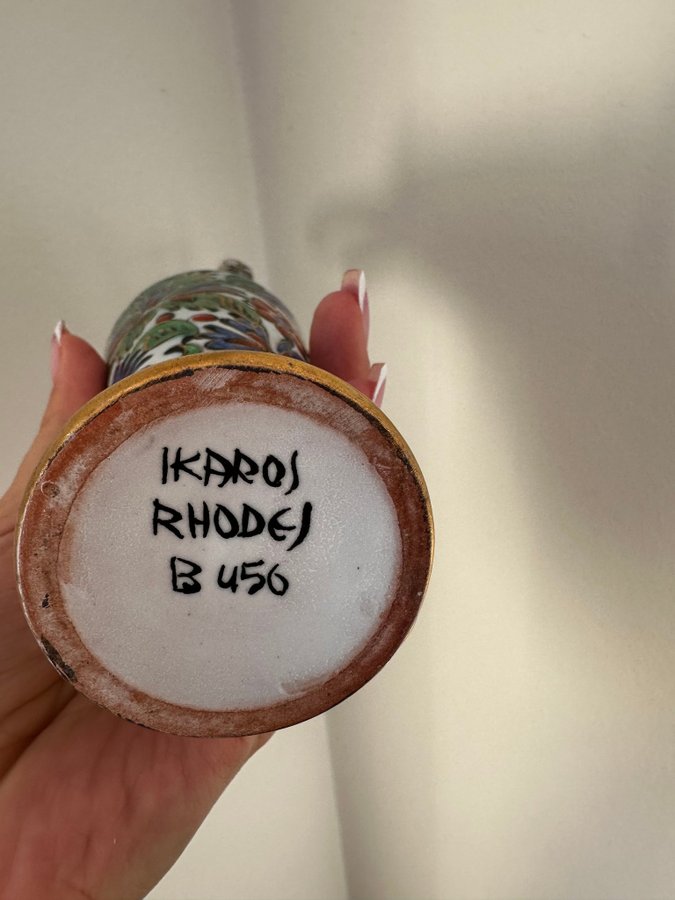 IKAROS
RHODES
B 456